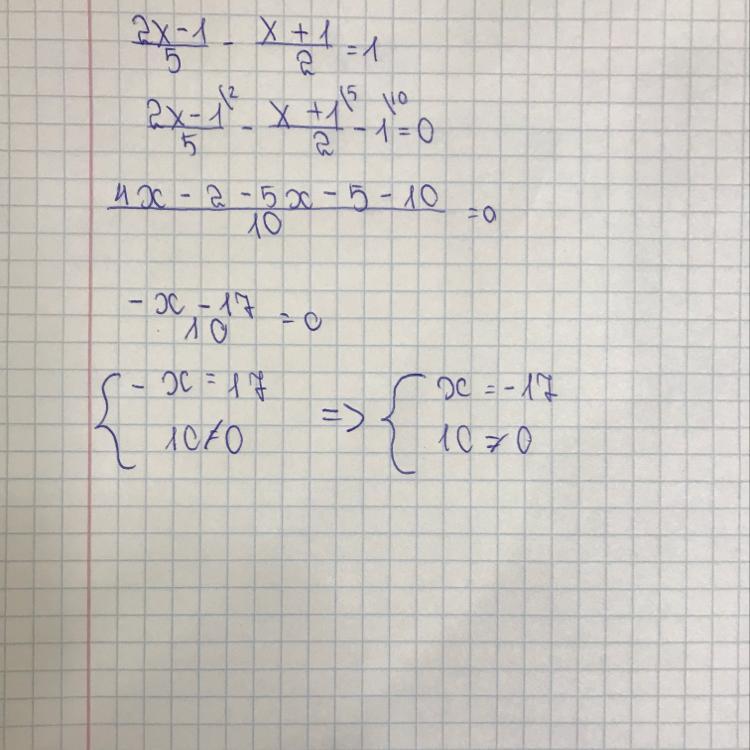 (2x-1)/5 - (x+1)/2 = 1
(2x-1)/5 \2 - (x+1)/2 \5 - 1 \10 = 0
(4x - 2 - 5x - 5 - 10)/10 = 0
(-x - 17)/10 = 0
{ -x = 17 => { x = -17
10 ≠ 0 10 ≠ 0